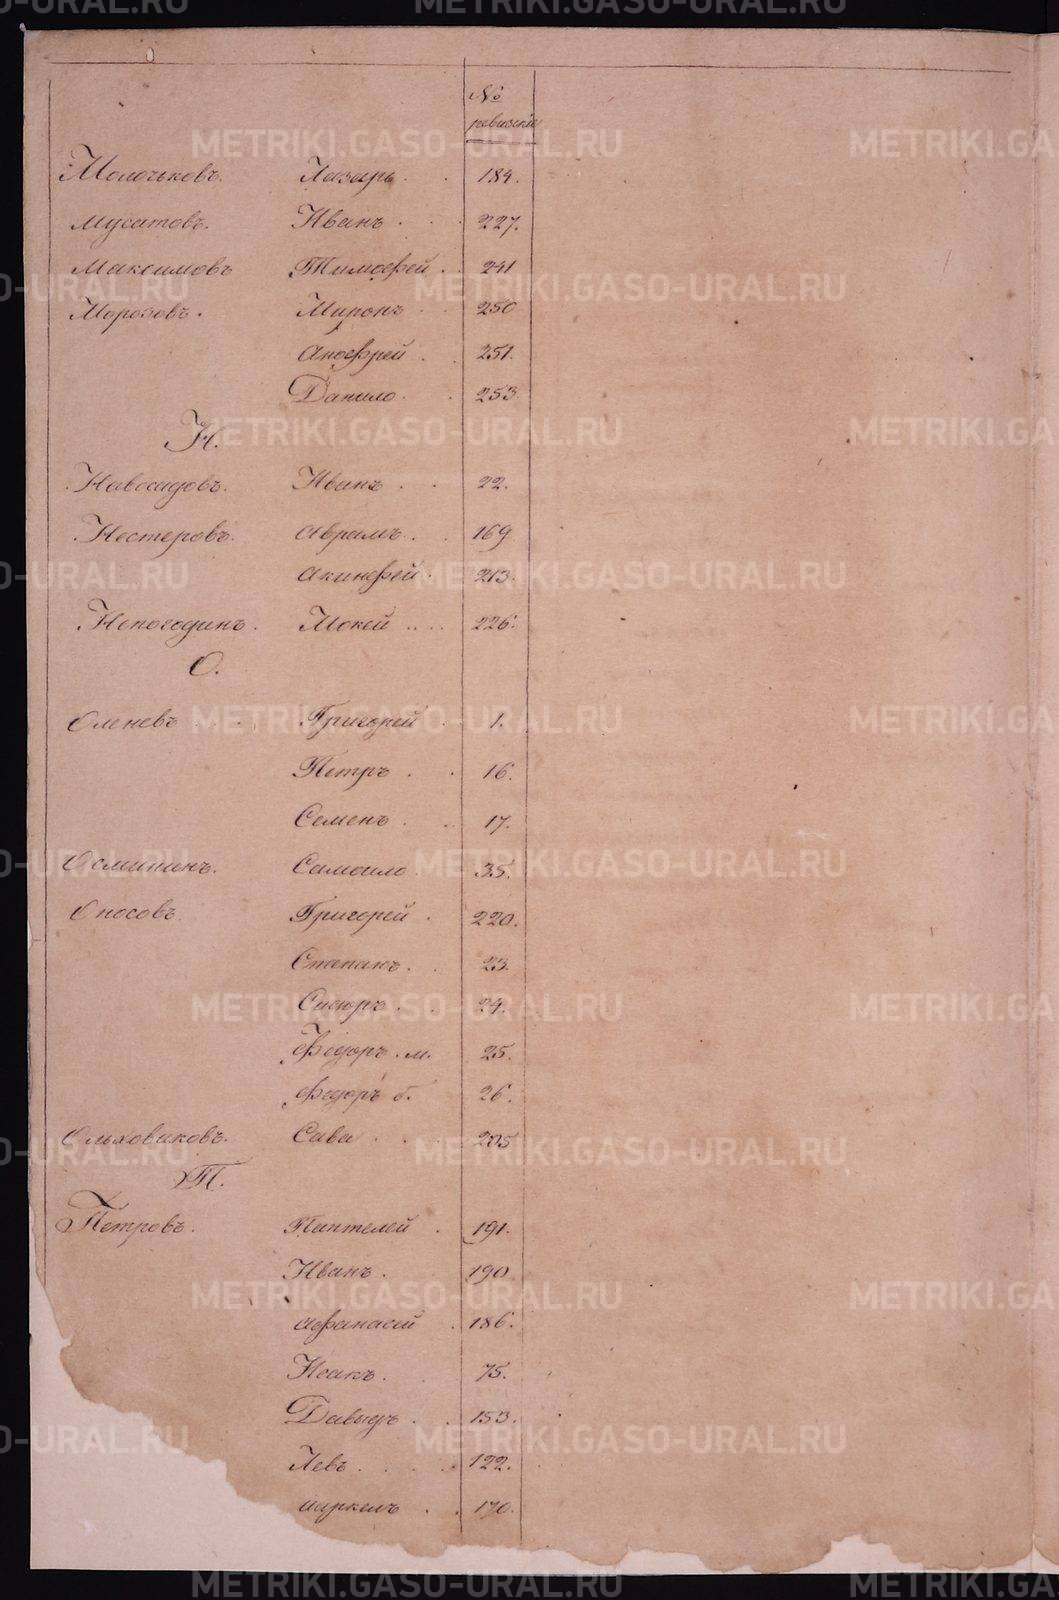 №
ревизскіи
Молочковъ. Лазарь . . 184.
Мусатовъ. Иванъ . . . 227.
Максимовъ Тимофей . . 241
Морозовъ. Миронъ . . 250
Анофрей . . 251.
Данило . . 253
Н.
Новосадовъ. Иванъ . . 22.
Нестеровъ. Аврамъ . . 169
Акинфей . 213.
Непогодинъ. Мокей .. .. 226.
О.
Оленевъ . . . Григорей . 1.
Петръ . . 16.
Семенъ . .. 17.
Осминин. Самоило . 35.
Оносовъ. Григорей . 220.
Степанъ . . 23.
Сидоръ . . 24.
Федоръ . м. 25.
Федоръ б. 26.
Ольховиковъ. Сава . . . 205
П.
Петровъ. Пантелей . 191.
Иванъ . 190
Афанасей . 186.
Исакъ . . 75.
Давыдъ . . 153.
Левъ . . . . 122.
Маркелъ . . 170.
METRIKI.GASO-URAL.RU